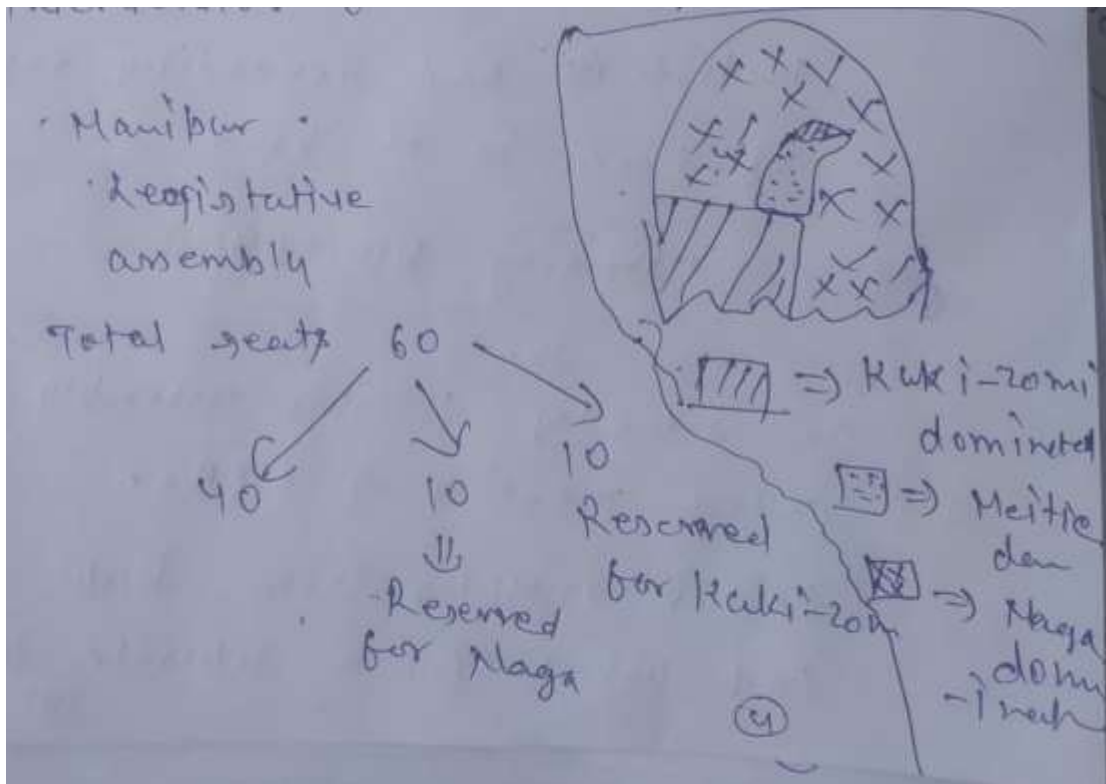 Manipur
Leogistative
assembly
Total seats 60
40
10
10
Reserved
for Naga
Reserved
for Kuki-zom
=> Kuki-zomi
domineted
=> Meitie
dom
=> Naga
domi
-ineh
4